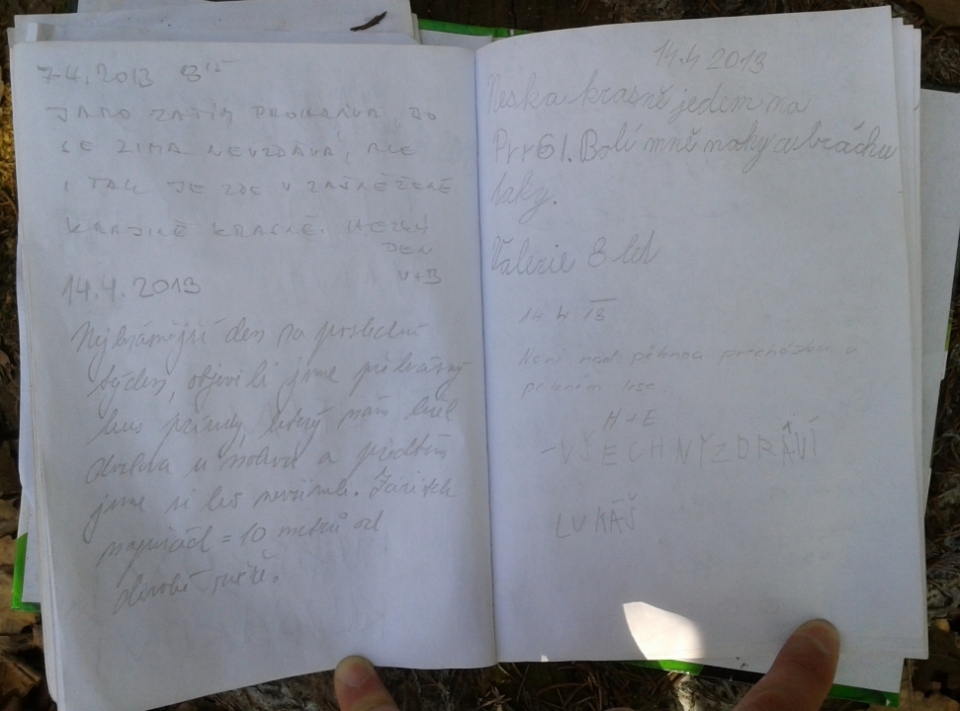 7.4.2013 8¹⁵
JARO ZATÍM PROHRÁVÁ, BO
SE ZIMA NEVZDÁVÁ, ALE
I TAK JE ZDE V ZASNĚŽENÉ
KRAJINĚ KRÁSNĚ. HEZKÝ
DEN
V+B
14.4.2013
Nejkrásnější den za poslední
týden, objevili jsme překrásný
kus přírody, který nám byl
u a předtím
jsme si ho nevšimli. Zážitek
= 10 metrů od
divoké
14.4 2013
Neska krasně jedem na
Prr61. Bolí mně nohy a bráchu
taky.
Valerie 8 let
14 4 13
Není nad pěknou procházku v
pěkném lese.
H+E
-VŠECHNY ZDRAVÍ
LUKÁŠ